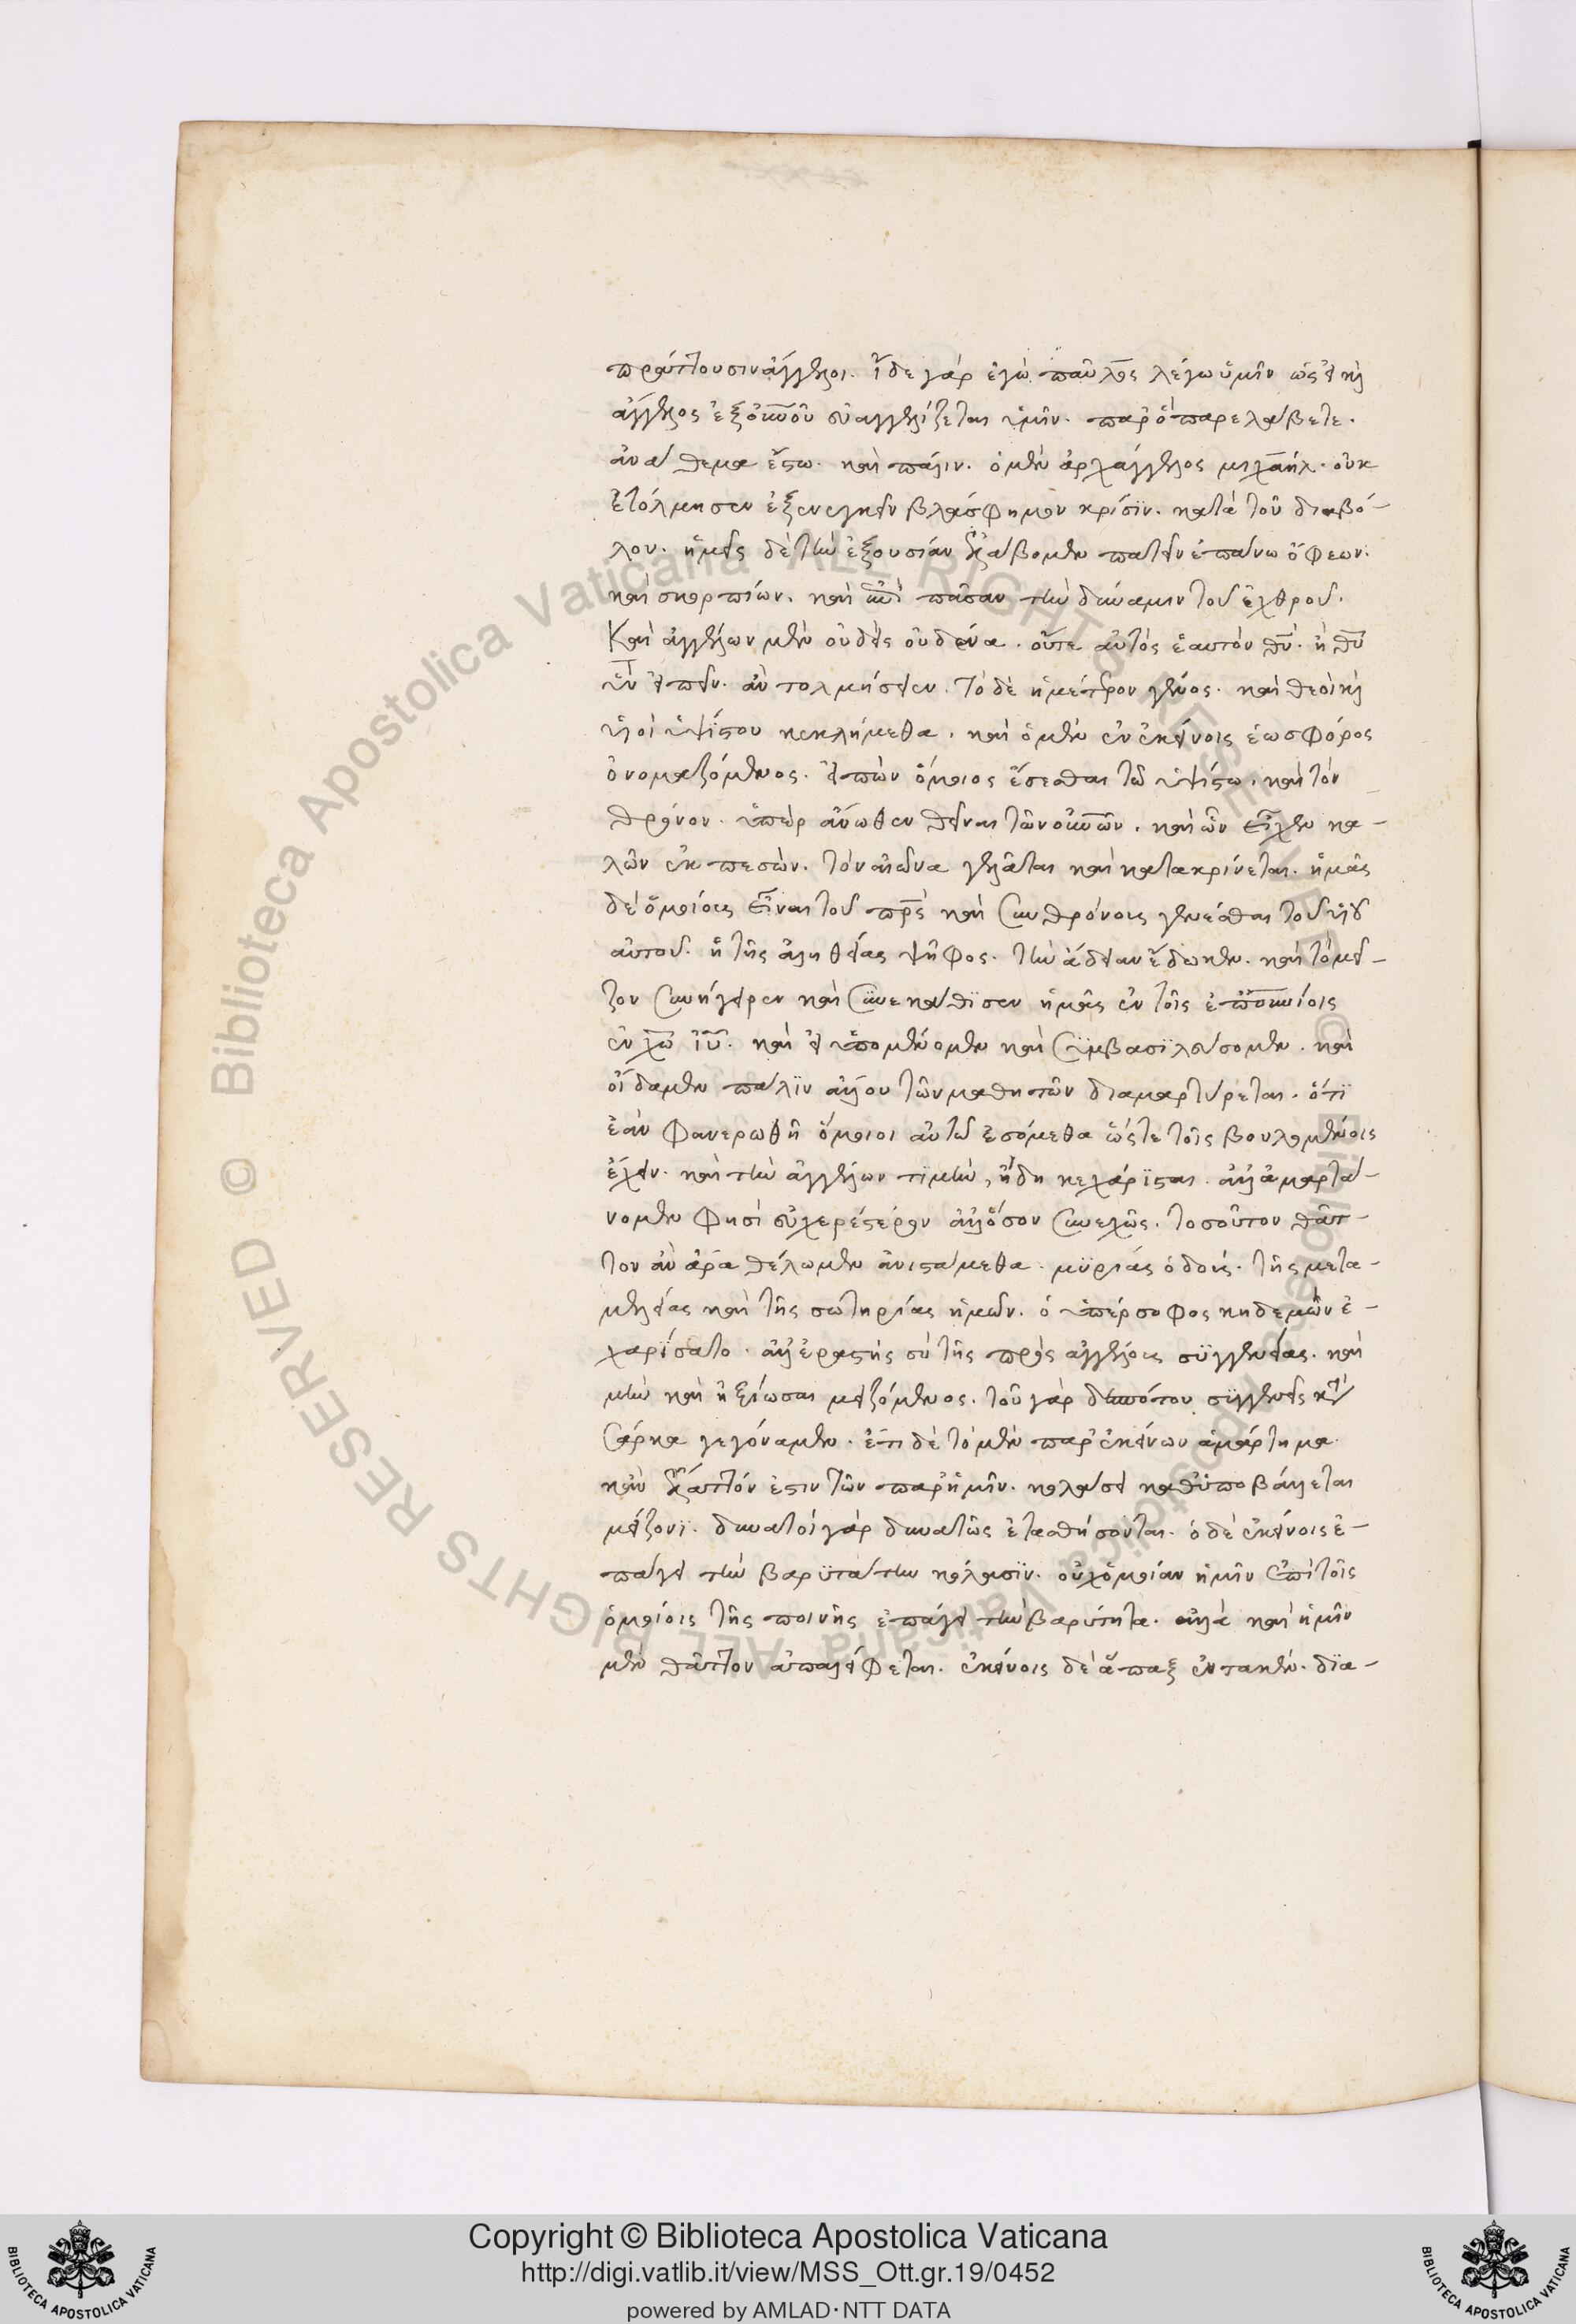 πράττουσιν ἄγγελοι. ἴδε γάρ ἐγὼ παῦλος λέγω ὑμῖν ὡς εἰ καὶ
ἄγγελος ἐξ οὐνοῦ εὐαγγελίζεται ὑμῖν. παρ ὁ παρελάβετε.
ἀνάθεμα ἔστω. καὶ πάλιν. ὁ μὲν ἀρχάγγελος μιχαήλ. οὐκ
ἐτόλμησεν ἐξενεγκεῖν βλάσφημον κρίσϊν. κατὰ τοῦ διαβό-
λου. ἡμεῖς δὲ τὴν ἐξουσίαν ἐλάβομεν πατεῖν ἐπάνω ὄφεων.
καὶ σκορπίων. καὶ ἐπὶ πᾶσαν τὴν δύναμιν τοῦ ἐχθροῦ.
Καὶ ἀγγέλων μὲν οὐδεὶς οὐδένα. οὔτε αὐτὸς ἑαυτόν θν̄. ἢ θῡ
υν̄ εἰπεῖν. ἂν τολμήσειεν. τὸ δὲ ἡμέτερον γένος. καὶ θεοὶ καὶ
υἱοὶ ὑψίστου κεκλήμεθα. καὶ ὁ μὲν ἐν ἐκείνοις ἑωσφόρος
ὀνομαζόμενος. εἰπὼν ὅμοιος ἔσεσθαι τῶ ὑψίστω. καὶ τὸν
θρόνον. ὑπὲρ ἄνωθεν θεῖναι τῶν οὐνῶν. καὶ ὧν εἶχεν κα-
λῶν ἐκπεσὼν. τὸν αἰῶνα γελᾶται καὶ κατακρίνεται. ἡμᾶς
δὲ ὁμοίους εἶναι τοῦ πρ̄ς καὶ συνθρόνους γενέσθαι τοῦ υἱοῦ
αὐτοῦ. ἡ τῆς ἀληθείας ψῆφος. τὴν ἄδειαν ἔδωκεν. καὶ τὸ μεῖ-
ζον συνήγειρεν καὶ συνεκάθϊσεν ἡμᾶς ἐν τοῖς ἐπουνίοις
ἐν χω̄ ιῡ. καὶ εἰ ὑπομένομεν καὶ συμβασϊλεύσομεν. καὶ
οἴδαμεν πάλϊν ἄλλου τῶν μαθητῶν διαμαρτύρεται. ὅτϊ
ἐὰν φανερωθῆ ὅμοιοι αὐτῶ ἐσόμεθα ὥστε τοῖς βουλομένοις
ἔχειν. καὶ τὴν ἀγγέλων τϊμὴν, ἤδη κεχάρϊσται. ἀλλ ἁμαρτά-
νομεν φησὶ εὐχερέστερον ἀλλ ὅσον συνεχῶς. τοσοῦτον θᾶτ-
τον ἂν ἄρα θέλωμεν ἀνιστάμεθα. μϋρίας ὁδοὺς. τῆς μετα-
μελείας καὶ τῆς σωτηρίας ἡμῶν. ὁ ὑπέρσοφος κηδεμὼν ἐ-
χαρϊσατο. ἀλλ ἐραστὴς σὺ τῆς πρὸς ἀγγέλους σϋγγενείας. καὶ
μὴν καὶ ἠξίωσαι μειζόμενος. τοῦ γὰρ δεσπότου συγγενεῖς κατὰ
σάρκα γεγόναμεν. ἔτι δὲ τὸ μὲν παρ ἐκείνων ἁμάρτημα.
κἂν ἔλαττόν ἐστιν τῶν παρ ἡμῖν. κολάσει καθυποβάλλεται
μείζονϊ. δυνατοὶ γὰρ δυνατῶς ἐτασθήσονται. ὁ δὲ ἐκείνοις ἐ-
πάγει τὴν βαρϋτάτην κόλασϊν. οὐχ ὁμοίαν ἡμῖν ἐπὶ τοῖς
ὁμοίοις τῆς ποινῆς ἐπάγει τὴν βαρύτητα. ἀλλὰ καὶ ἡμῖν
μὲν θᾶττον ἀπαλείφεται. ἐκείνοις δὲ ἅπαξ ἐντακὲν. δϊα-
Copyright © Biblioteca Apostolica Vaticana
http://digi.vatlib.it/view/MSS_Ott.gr.19/0452
powered by AMLAD·NTT DATA